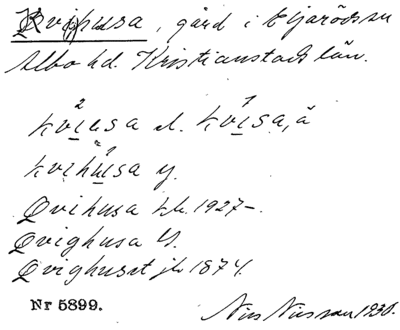 Qvihusa, gård i Eljaröds sn
Albo hd. Kristianstads län.
kvi²usa el. kvi¹sa, ä
kvihu¹sa y.
Qvihusa kb. 1927–.
Qvighusa
Qvighuset jb 1874.
Nr 5899.
Nils Nilsson 1930.